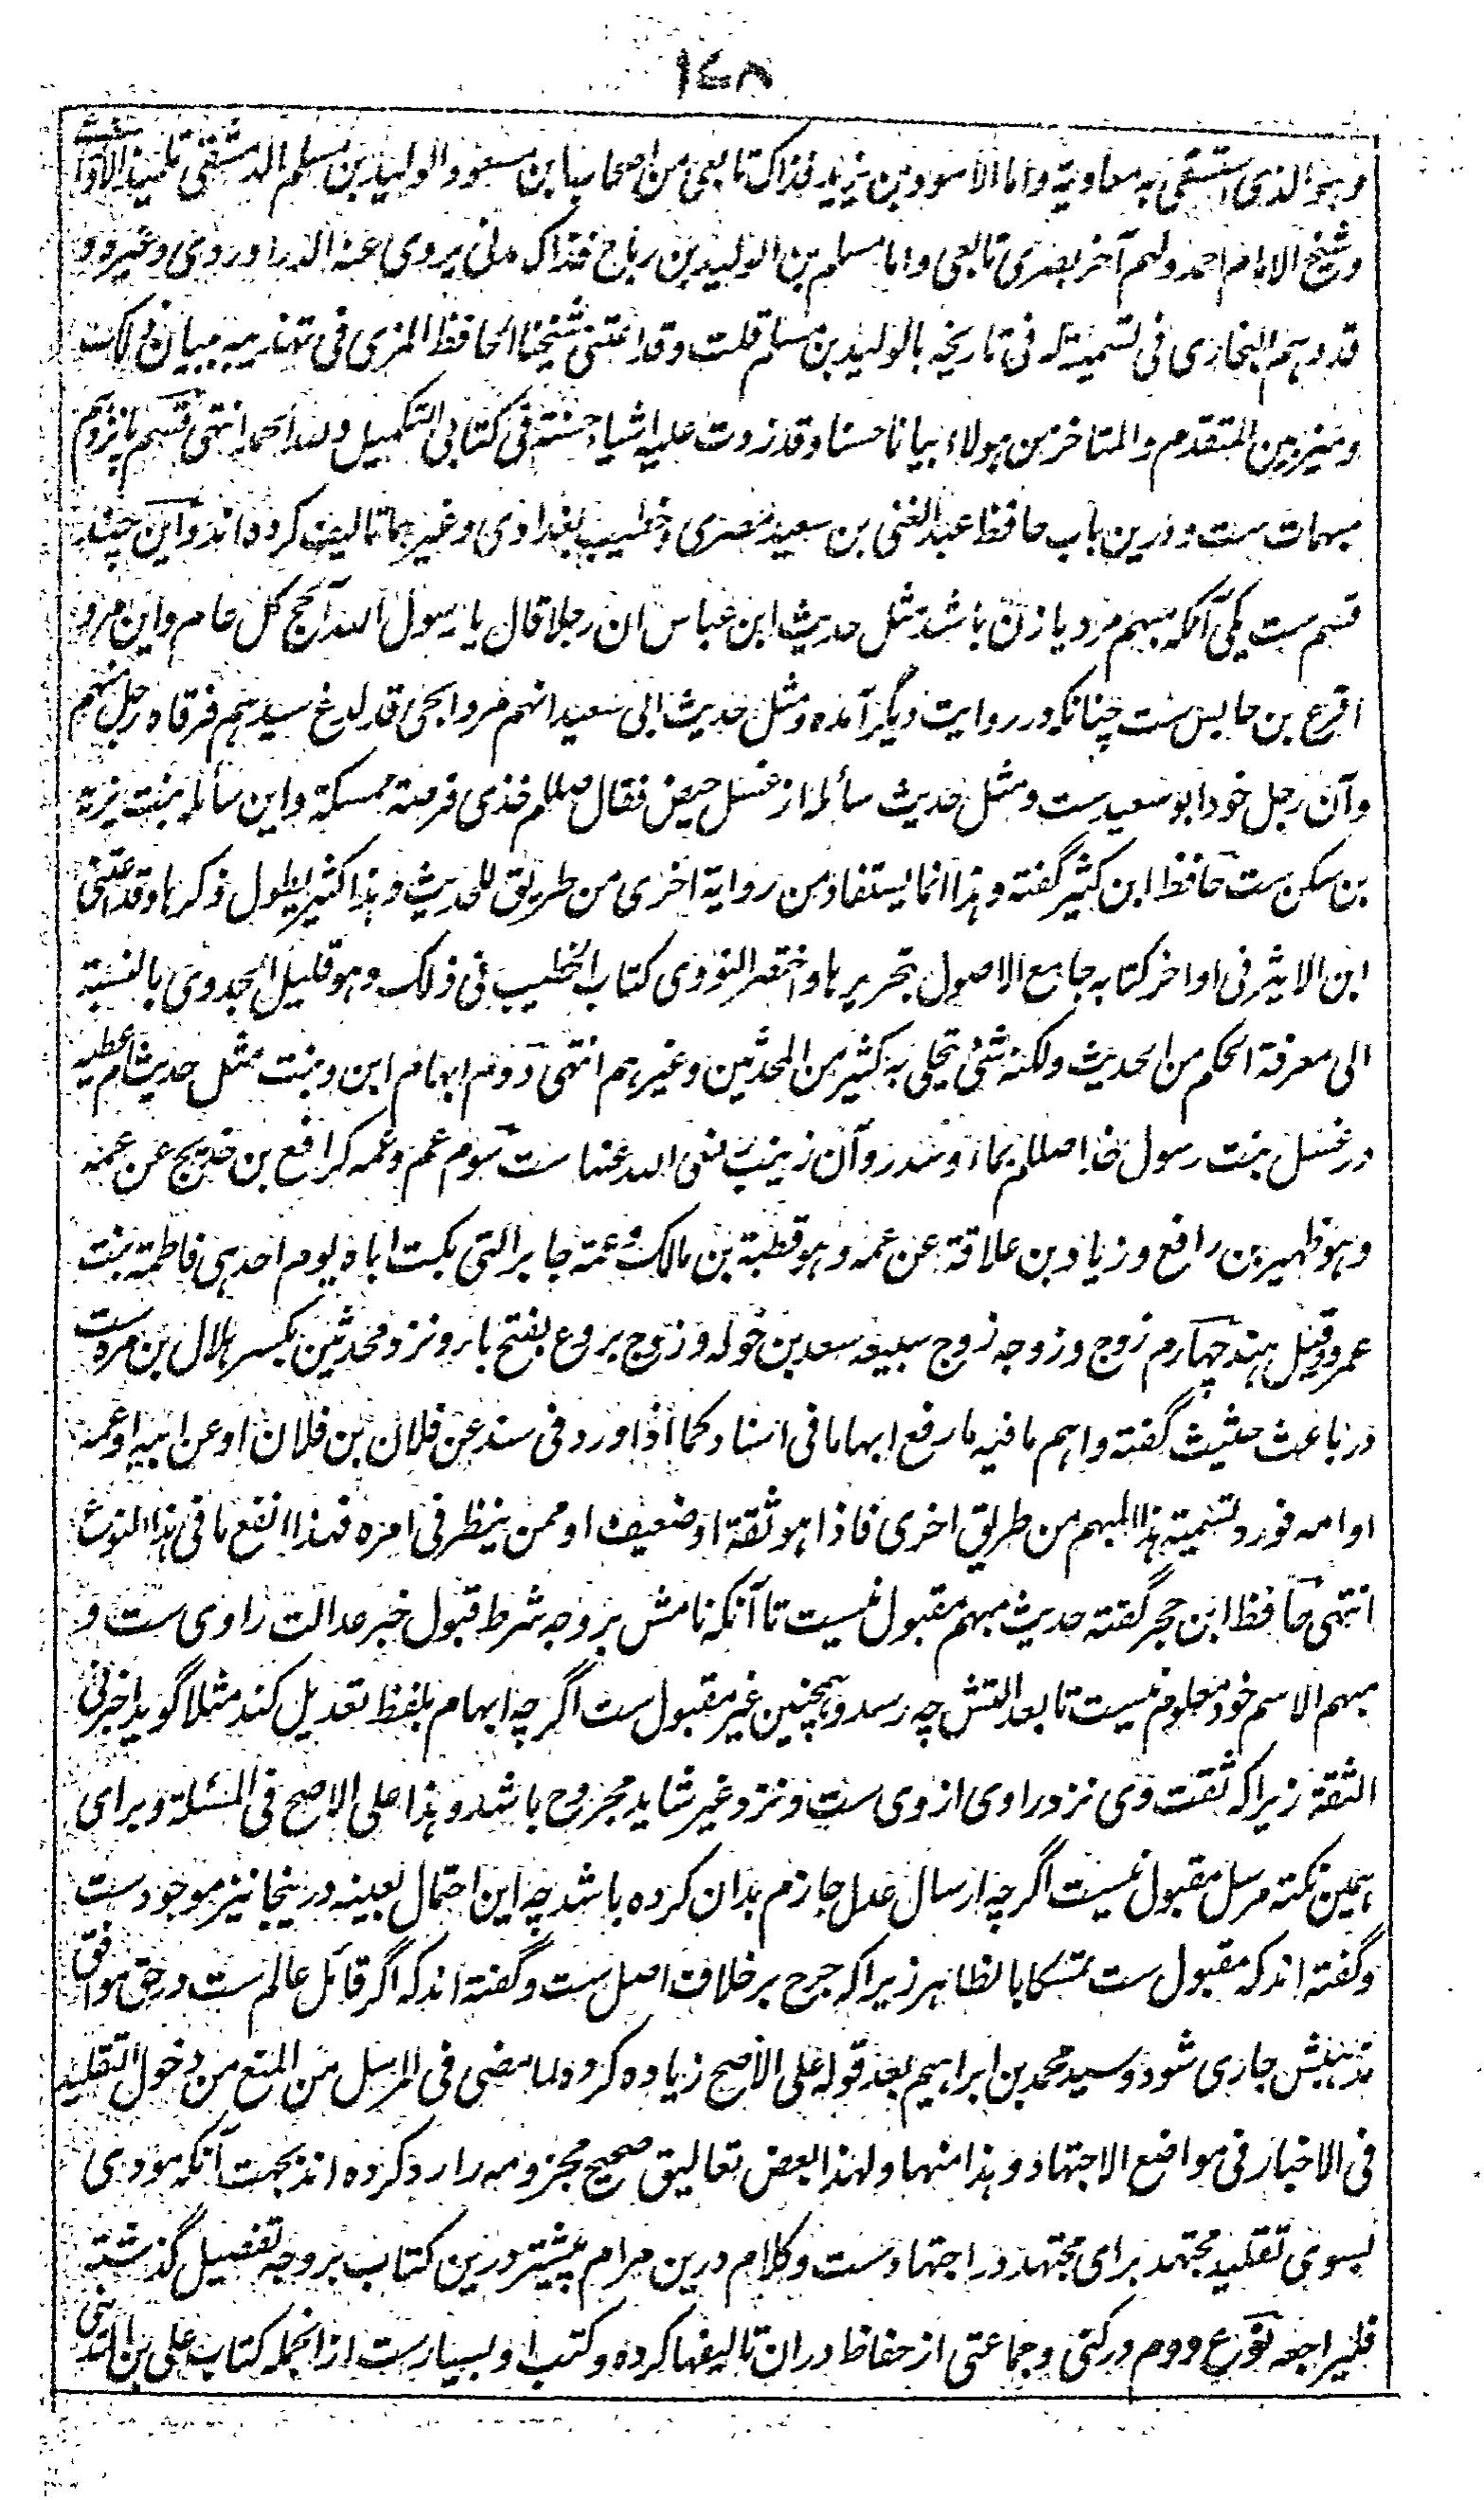 ۱۷۸
وہو الذی استسقی بہ معاویۃ واما الاسود بن یزید فذاک تابعی من اصحاب ابن مسعود والولید بن مسلم الدمشقی تلمیذ الاوزاعی
وشیخ الامام احمد ولہم آخر بصری تابعی واما مسلم بن الولید بن رباح فذاک مدنی یروی عنہ الدراوردی وغیرہ و
قد وہم البخاری فی تسمیتہ لہ فی تاریخہ بالولید بن مسلم قلت وقد اعتنی شیخنا الحافظ المزی فی تہذیبہ ببیان ذلک
ومیز بین المتقدم والمتاخر من ہولاء بیانا حسنا وقد زدت علیہ اشیاء حسنۃ فی کتابی التکمیل وللہ الحمد انتہی قسم پانزدہم
مبہمات ست و درین باب حافظ عبد الغنی بن سعید مصری و خطیب بغدادی و غیرہما تالیف کردہ اند و این چند
قسم ست یکی آنکہ مبہم مرد یا زن باشد مثل حدیث ابن عباس ان رجلا قال یا رسول اللہ آلحج کل عام و این مرد
اقرع بن حابس ست چنانکہ در روایت دیگر آمدہ و مثل حدیث ابی سعید انہم مروا بحی قد لدغ سیدہم فرقاہ رجل منہم
و آن رجل خود ابو سعید ست و مثل حدیث سألہ از غسل حیض فقال صللم خذی فرصۃ ممسکۃ و این سائلہ بنت یزید
بن سکن ست حافظ ابن کثیر گفتہ وہذا انما یستفاد من روایۃ اخری من طریق للحدیث وہذا کثیر یطول ذکرہا وقد اعتنی
ابن الاثیر فی اواخر کتابہ جامع الاصول بتحریرہا واختصر النووی کتاب الخطیب فی ذلک وہو قلیل الجدوی بالنسبۃ
الی معرفۃ الحکم من الحدیث ولکنہ شئ یتحلی بہ کثیر من المحدثین وغیرہم انتہی دوم ابہام ابن و بنت مثل حدیث ام عطیہ
در غسل بنت رسول خدا صللم بماء و سدر و آن زینب رضی اللہ عنہا ست سوم عم و عمہ کرافع بن خدیج عن عمہ
وہو ظہیر بن رافع و زیاد بن علاقۃ عن عمہ وہو قطبۃ بن مالک و عمۃ جابر التی بکت اباہ یوم احد ہی فاطمۃ بنت
عمرو وقیل ہند چہارم زوج و زوجہ زوج سبیعہ سعد بن خولہ و زوج بروع بفتح با و نزد محدثین بکسر ہلال بن مرہ ست
در باعث حثیث گفتہ واہم ما فیہ ما رفع ابہاما فی اسناد کما اذا ورد فی سند عن فلان بن فلان او عن ابیہ او عمہ
او امہ فورد تسمیۃ ہذا المبہم من طریق اخری فاذا ہو ثقۃ او ضعیف او ممن ینظر فی امرہ فہذا انفع ما فی ہذا النوع
انتہی حافظ ابن حجر گفتہ حدیث مبہم مقبول نیست تا آنکہ نامش برد چہ شرط قبول خبر عدالت راوی ست و
مبہم الاسم خود معلوم نیست تا بعدالتش چہ رسد و ہمچنین غیر مقبول ست اگر چہ ابہام بلفظ تعدیل کند مثلا گوید اخبرنی
الثقۃ زیرا کہ ثقت وی نزد راوی از وی ست و نزد غیر شاید مجروح باشد وہذا علی الاصح فی المسئلۃ و برای
ہمین نکتہ مرسل مقبول نیست اگر چہ ارسال عدل جازم بدان کردہ باشد چہ این احتمال بعینہ در ینجا نیز موجود ست
و گفتہ اند کہ مقبول ست تمسکا بالظاہر زیرا کہ جرح بر خلاف اصل ست و گفتہ اند کہ اگر قائل عالم ست در حق موافق
مذہبش جاری شود و سید محمد بن ابراہیم بعد قولہ علی الاصح زیادہ کردہ لما مضی فی المرسل من المنع من دخول التقلید
فی الاخبار فی مواضع الاجتہاد وہذا منہا ولہذا بعض تعالیق صحیح مجزومہ را رد کردہ اند بجہت آنکہ مودی
بسوی تقلید مجتہد برای مجتہد در اجتہاد ست و کلام درین مرام پیشتر درین کتاب بر وجہ تفصیل گذشتہ
فلیراجعہ نوع دوم در کنی و جماعتی از حفاظ دران تالیفہا کردہ و کتب او بسیار ست از انجملہ کتاب علی بن المدینی